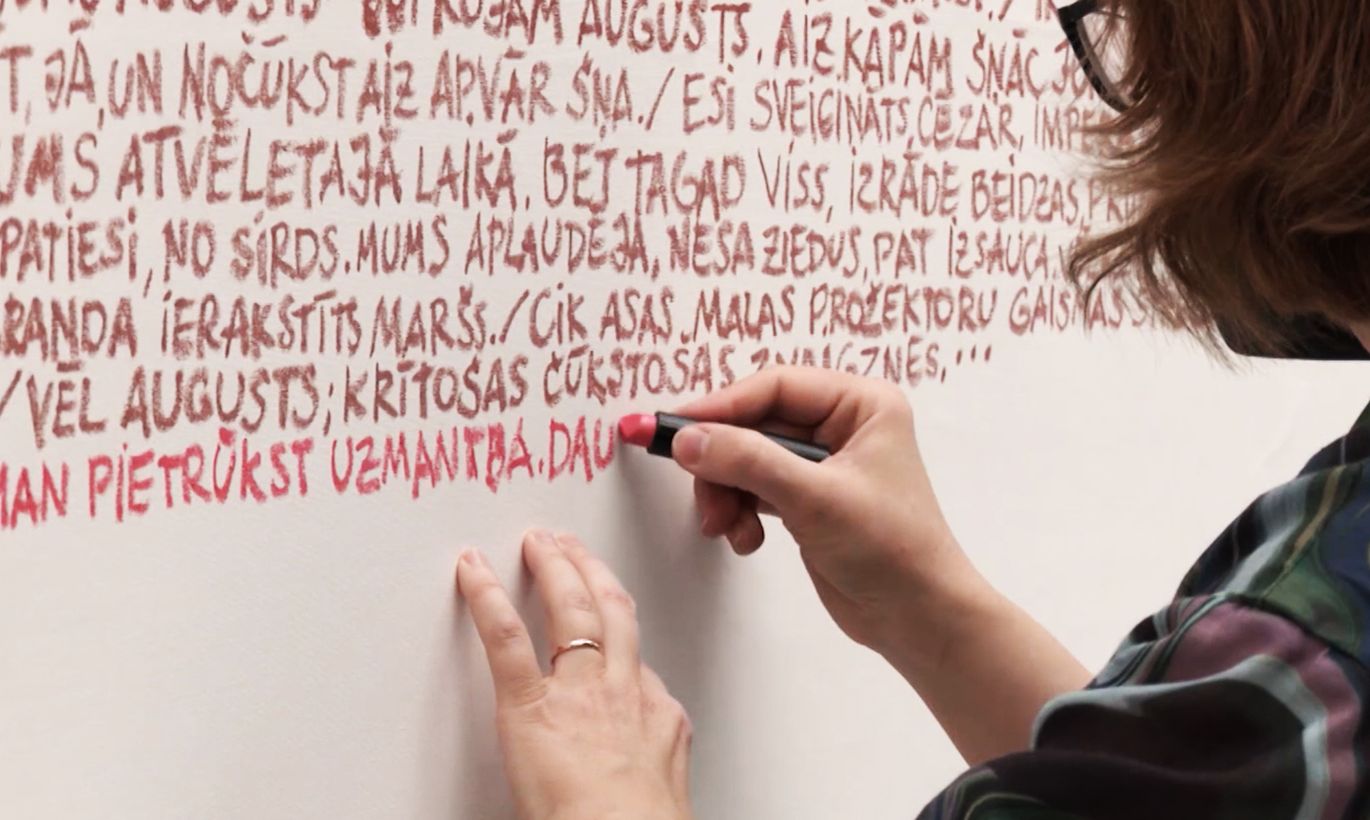 AUGUSTS, AIZ KĀPĀM ŠŅĀC
T, JĀ, UN NOČŪKST AIZ APVĀRŠŅA. / ESI SVEICINĀTS, CĒZAR,
ATVĒLĒTAJĀ LAIKĀ, BET TAGAD VISS, IZRĀDE BEIDZAS,
PATIESI, NO SIRDS. MUMS APLAUDĒJA, NESA ZIEDUS, PAT IZSAUCA,
IERAKSTĪTS MARŠS. / CIK ASAS MALAS PROŽEKTORU GAISMAS
/ VĒL AUGUSTS; KRĪTOŠAS ČŪKSTOŠAS ZVAIGZNES,...
MAN PIETRŪKST UZMANĪBA. DAU